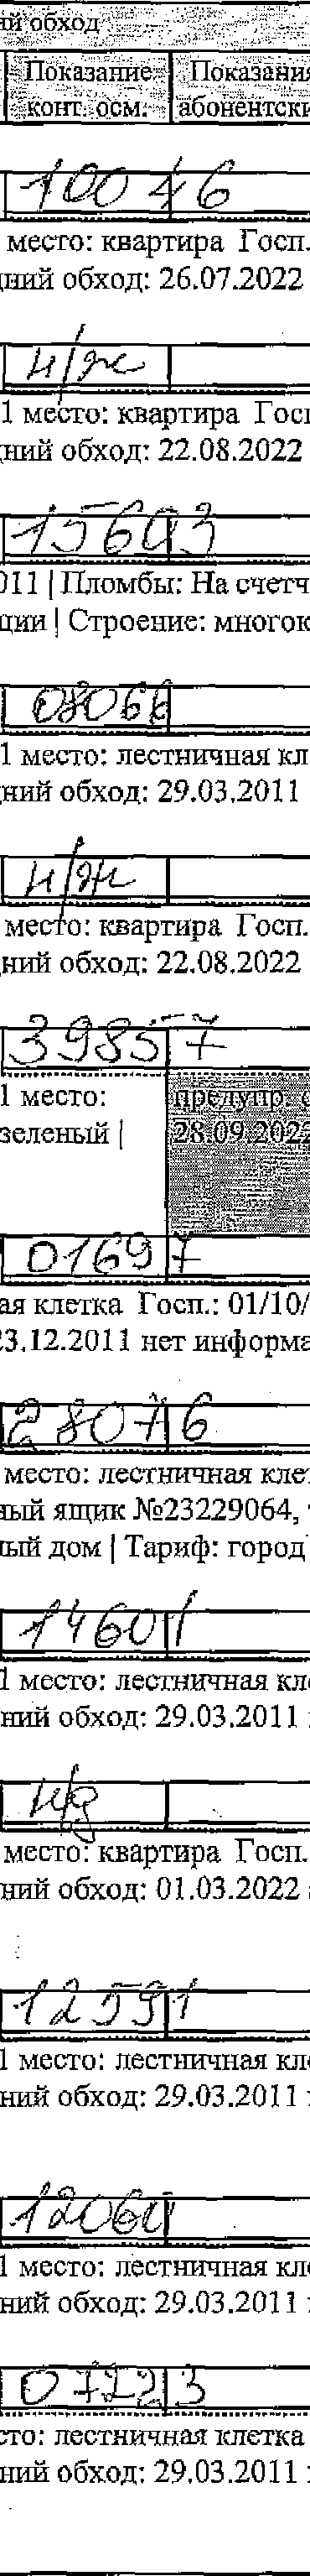 ий обход
Показание Показания
конт. осм. абонентски
10046
место: квартира Госп.
ний обход: 26.07.2022
н/ж
1 место: квартира Госп
ний обход: 22.08.2022
15603
011 | Пломбы: На счетч
ции | Строение: многок
08066
1 место: лестничная кл
ний обход: 29.03.2011
н/ж
место: квартира Госп.
ний обход: 22.08.2022
39857
1 место: предупр
зеленый | 28.09.2022
01697
ая клетка Госп.: 01/10/
23.12.2011 нет информа
28076
место: лестничная клет
ный ящик №23229064,
ный дом | Тариф: город
14601
1 место: лестничная кл
ний обход: 29.03.2011
н/д
место: квартира Госп.
ний обход: 01.03.2022
12591
1 место: лестничная кл
ний обход: 29.03.2011
12060
1 место: лестничная кл
ний обход: 29.03.2011
07223
сто: лестничная клетка
ний обход: 29.03.2011